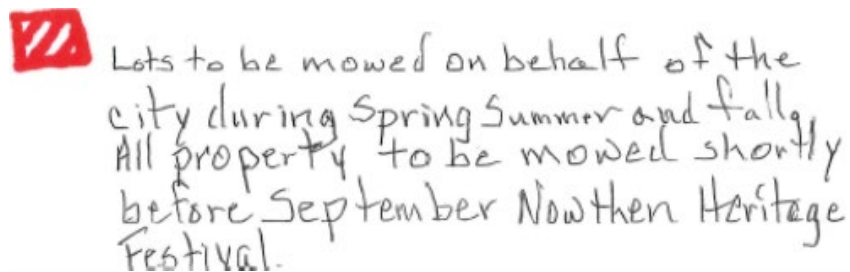 Lots to be mowed on behalf of the
city during Spring Summer and fall.
All property to be mowed shortly
before September Nowthen Heritage
Festival.